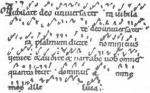 Iubilate deo universa terra iubila
te deo universa terr
a psalmum dicite nomini eius
venite et audite et narrabo vobis omni
quanta fecit dominus anime
mee alle luia